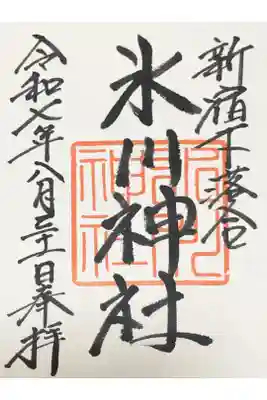 新宿下落合
氷川神社
令和七年八月三十一日奉拝